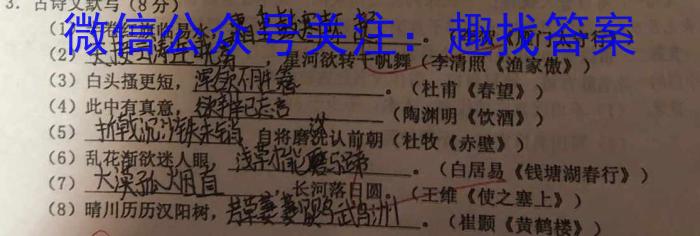 3. 古诗文默写（8分）
微信公众号关注：趣找答案
(1) 卷红旗
(2) 天接云涛连晓雾，星河欲转千帆舞（李清照《渔家傲》）
(3) 白头搔更短，浑欲不胜簪。（杜甫《春望》）
(4) 此中有真意，欲辨已忘言。（陶渊明《饮酒》）
(5) 折戟沉沙铁未销，自将磨洗认前朝（杜牧《赤壁》）
(6) 乱花渐欲迷人眼，浅草才能没马蹄。（白居易《钱塘湖春行》）
(7) 大漠孤烟直，长河落日圆。（王维《使之塞上》）
(8) 晴川历历汉阳树，芳草萋萋鹦鹉洲。（崔颢《黄鹤楼》）